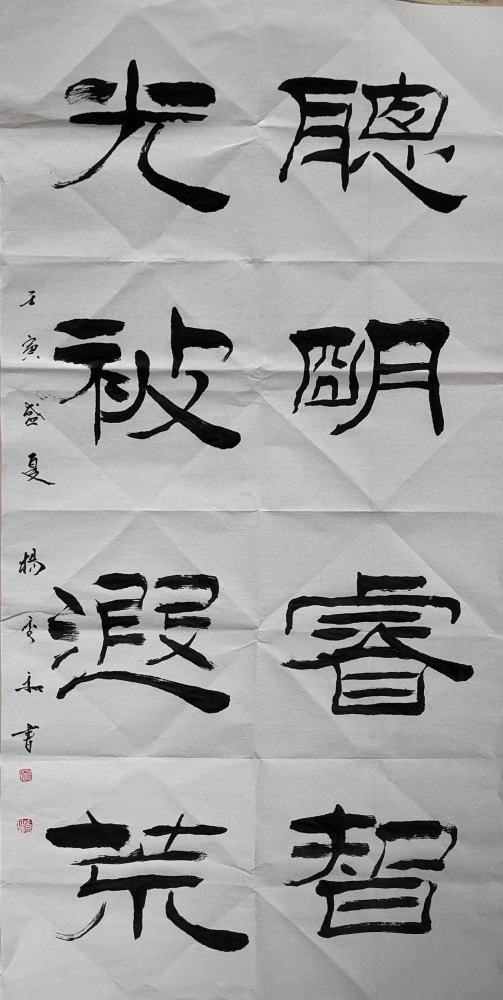 聰明睿智
光被遐荒
壬寅盛夏 楊秀和書